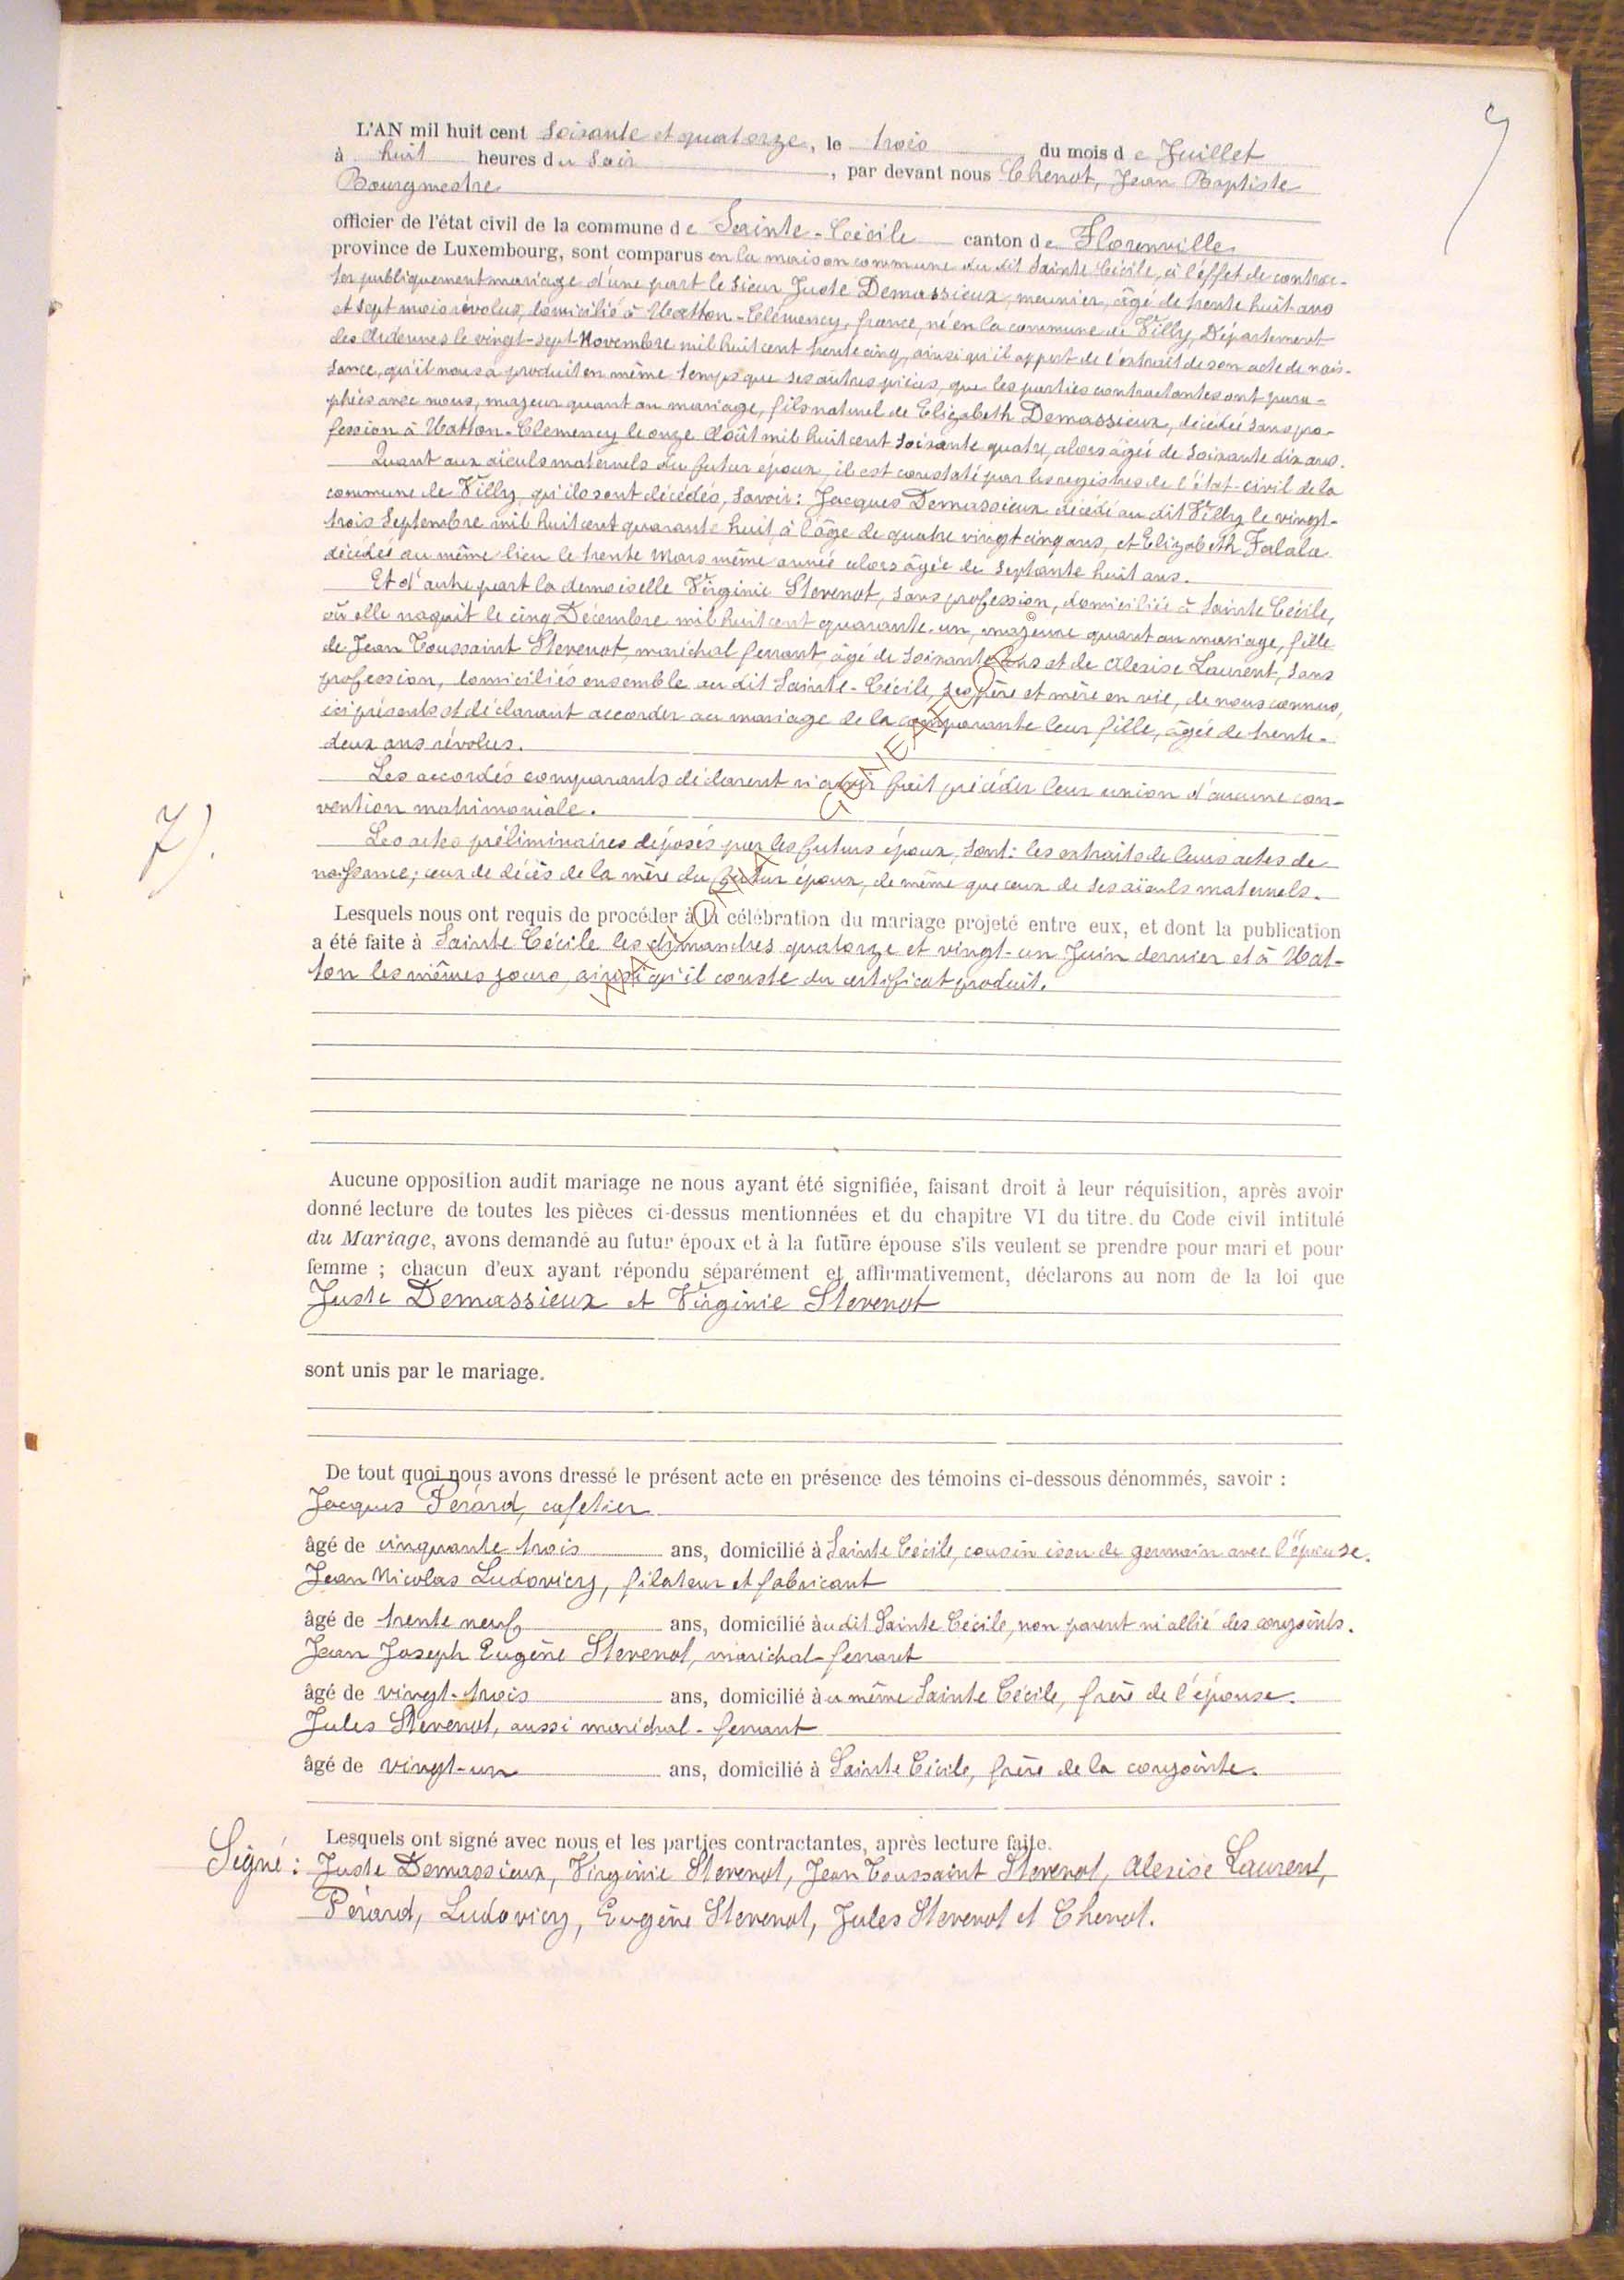 9
L'AN mil huit cent soixante et quatorze, le trois du mois de Juillet
à huit heures du soir, par devant nous Chenot, Jean Baptiste
Bourgmestre
officier de l'état civil de la commune de Sainte-Cécile canton de Florenville
province de Luxembourg, sont comparus en la maison commune du dit Sainte Cécile, à l'effet de contrac-
ter publiquement mariage d'une part le sieur Juste Demassieux, meunier, âgé de trente huit ans
et sept mois révolus, domicilié à Matton-Clémency, france, né en la commune de Villy, Département
des Ardennes le vingt-sept Novembre mil huit cent trente cinq, ainsi qu'il appert de l'extrait de son acte de nais-
sance, qu'il nous a produit en même temps que ses autres pièces, que les parties contractantes ont para-
phées avec nous, majeur quant au mariage, fils naturel de Elizabeth Demassieux, décédée sans pro-
fession à Matton-Clemency le onze Août mil huit cent soixante quatre, alors âgée de soixante dix ans.
Quant aux aïeuls maternels du futur époux, il est constaté par les registres de l'état-civil de la
commune de Villy, qu'ils sont décédés, savoir: Jacques Demassieux décédé au dit Villy le vingt-
trois Septembre mil huit cent quarante huit, à l'âge de quatre vingt cinq ans, et Elizabeth Falala
décédée au même lieu le trente Mars même année alors âgée de septante huit ans.
Et d'autre part la demoiselle Virginie Stevenot, sans profession, domiciliée à Sainte Cécile,
où elle naquit le cinq Décembre mil huit cent quarante-un, majeure quant au mariage, fille
de Jean Toussaint Stevenot, maréchal ferrant, âgé de soixante ans et de Alexise Laurent, sans
profession, domiciliés ensemble au dit Sainte-Cécile, ses père et mère en vie, de nous connus,
ici présents et déclarant accorder au mariage de la comparante leur fille, âgée de trente-
deux ans révolus.
Les accordés comparants déclarent n'avoir fait précéder leur union d'aucune con-
vention matrimoniale.
7).
Les actes préliminaires déposés par les futurs époux, sont: les extraits de leurs actes de
naissance; ceux de décès de la mère du futur époux, de même que ceux de ses aïeuls maternels.
Lesquels nous ont requis de procéder à la célébration du mariage projeté entre eux, et dont la publication
a été faite à Sainte Cécile les dimandres quatorze et vingt-un Juin dernier et à Mat-
ton les mêmes jours, ainsi qu'il conste du certificat produit.
Aucune opposition audit mariage ne nous ayant été signifiée, faisant droit à leur réquisition, après avoir
donné lecture de toutes les pièces ci-dessus mentionnées et du chapitre VI du titre du Code civil intitulé
du Mariage, avons demandé au futur époux et à la future épouse s'ils veulent se prendre pour mari et pour
femme ; chacun d'eux ayant répondu séparément et affirmativement, déclarons au nom de la loi que
Juste Demassieux et Virginie Stevenot
sont unis par le mariage.
De tout quoi nous avons dressé le présent acte en présence des témoins ci-dessous dénommés, savoir :
Jacques Pérard, cafetier
âgé de cinquante trois ans, domicilié à Sainte Cécile, cousin issu de germain avec l'épouse.
Jean Nicolas Ludovicy, filateur et fabricant
âgé de trente neuf ans, domicilié audit Sainte Cécile, non parent ni allié des conjoints.
Jean Joseph Eugène Stevenot, maréchal-ferrant
âgé de vingt-trois ans, domicilié au même Sainte Cécile, frère de l'épouse.
Jules Stevenot, aussi maréchal-ferrant
âgé de vingt-un ans, domicilié à Sainte Cécile, frère de la conjointe.
Lesquels ont signé avec nous et les parties contractantes, après lecture faite.
Signé: Juste Demassieux, Virginie Stevenot, Jean Toussaint Stevenot, Alexise Laurent,
Pérard, Ludovicy, Eugène Stevenot, Jules Stevenot et Chenot.